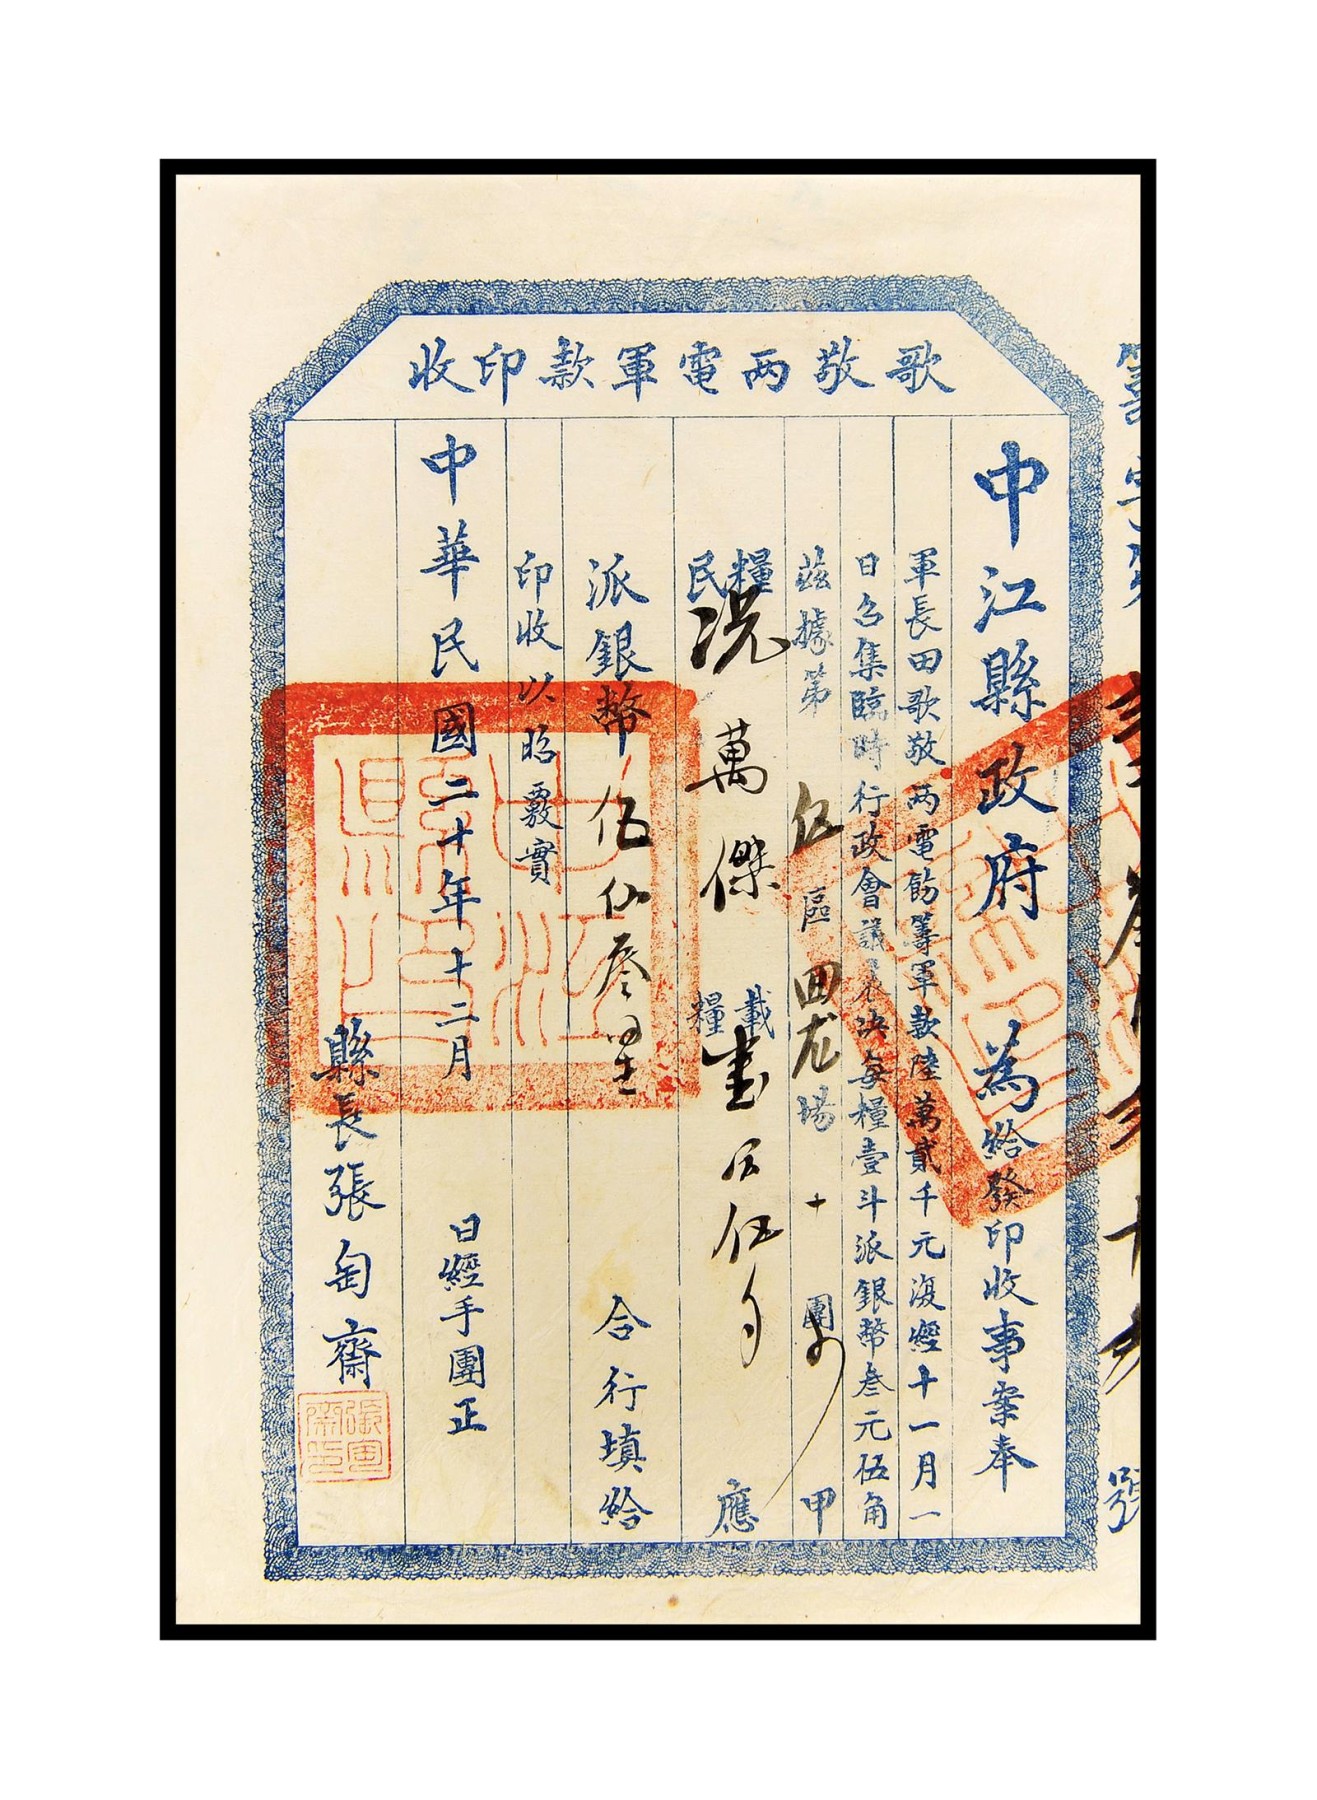 歌敬两電軍款印收
中江縣政府為給發印收事案奉
軍長田歌敬两電飭籌軍款陸萬貳千元復經十一月一
日召集臨時行政會議表決每糧壹斗派銀幣叁元伍角
茲據第伍區回龙場十團甲
糧民况萬傑載糧
應
派銀幣伍仙叁星合行填給
印收以昭覈實
中華民國二十年十二月
日經手團正
縣長張匋齋
中江縣印
號